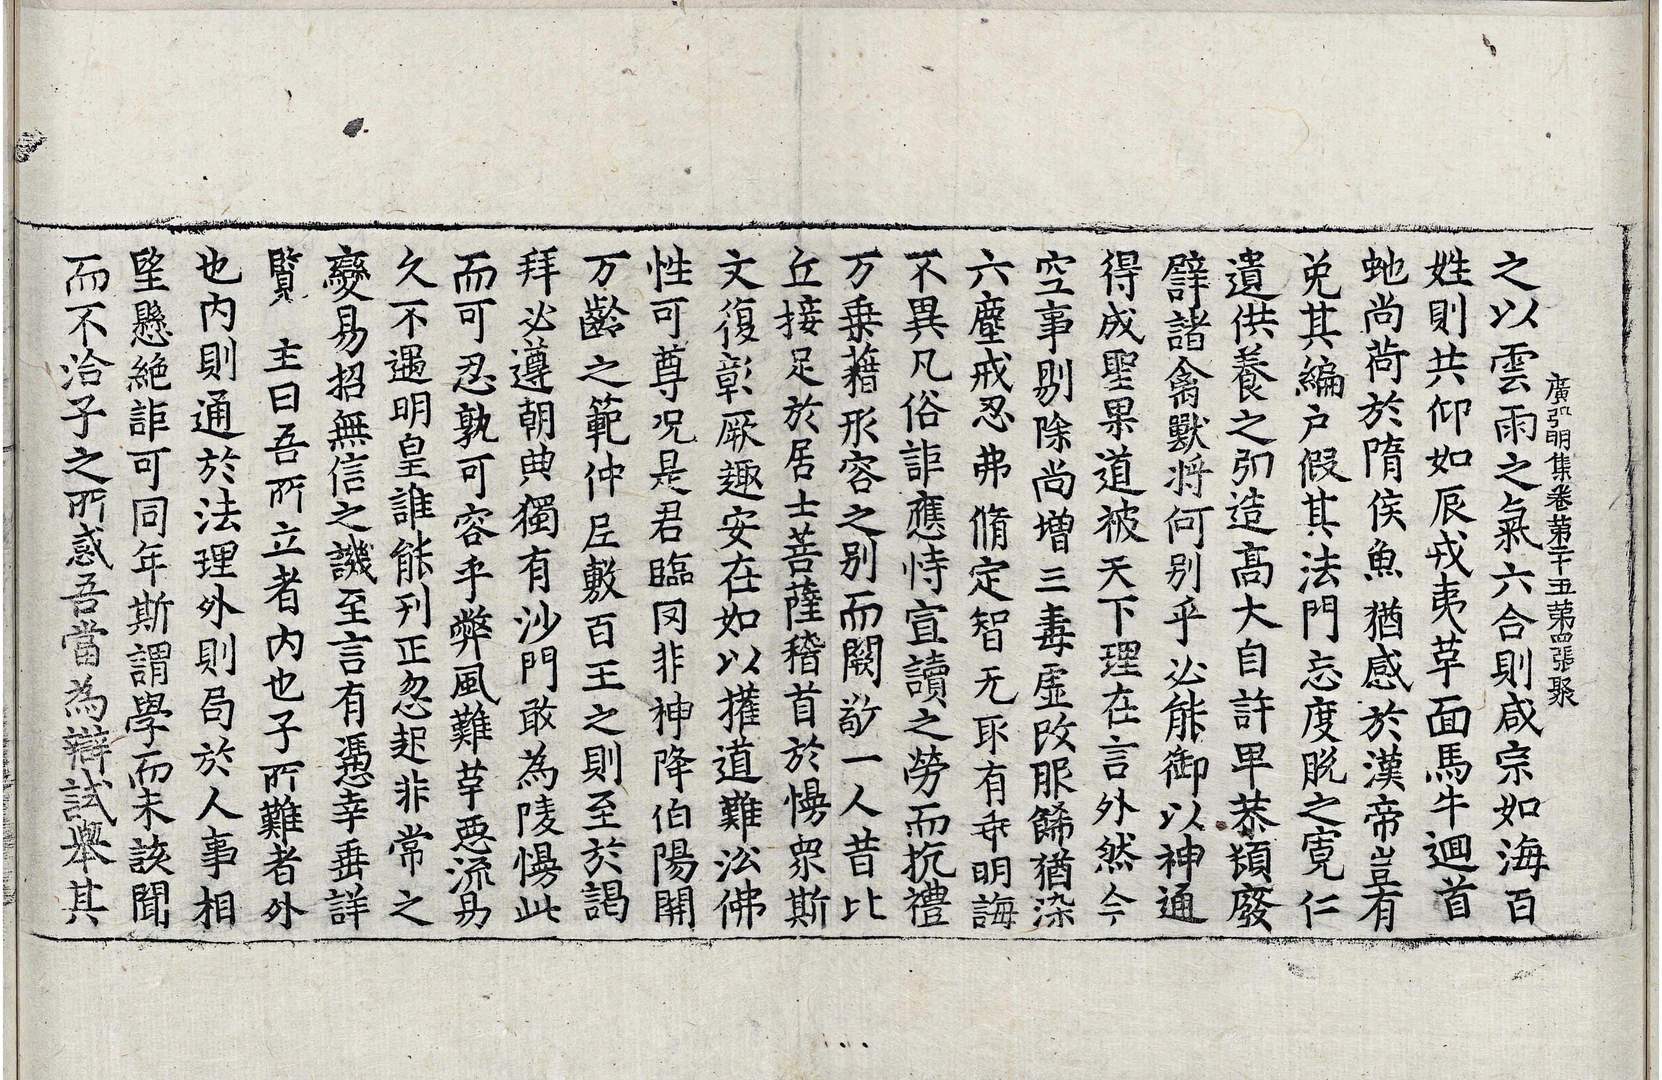 廣弘明集卷第二十五第四張聚
之以雲雨之氣六合則咸宗如海百
姓則共仰如辰戎夷革面馬牛迴首
虵尚荷於隋侯魚猶感於漢帝豈有
免其編户假其法門忘度脫之寬仁
遺供養之㓨造高大自許卑恭頓廢
譬諸禽獸將何別乎必能御以神通
得成聖果道被天下理在言外然今
空事剔除尚增三毒虛改服飾猶染
六塵戒忍弗脩定智无取有乖明誨
不異凡俗詎應恃宣讀之勞而抗禮
万乗藉形容之別而闕敬一人昔比
丘接足於居士菩薩稽首於慢衆斯
文復彰厥趣安在如以權道難沿佛
性可尊况是君臨罔非神降伯陽開
万齡之範仲𡰱敷百王之則至於謁
拜必遵朝典獨有沙門敢為陵慢此
而可忍孰可容乎弊風難革惡流易
久不遇明皇誰能刊正忽起非常之
變易招無信之譏至言有憑幸垂詳
覽　主曰吾所立者內也子所難者外
也內則通於法理外則局於人事相
望懸絕詎可同年斯謂學而未該聞
而不洽子之所惑吾當為辯試舉其